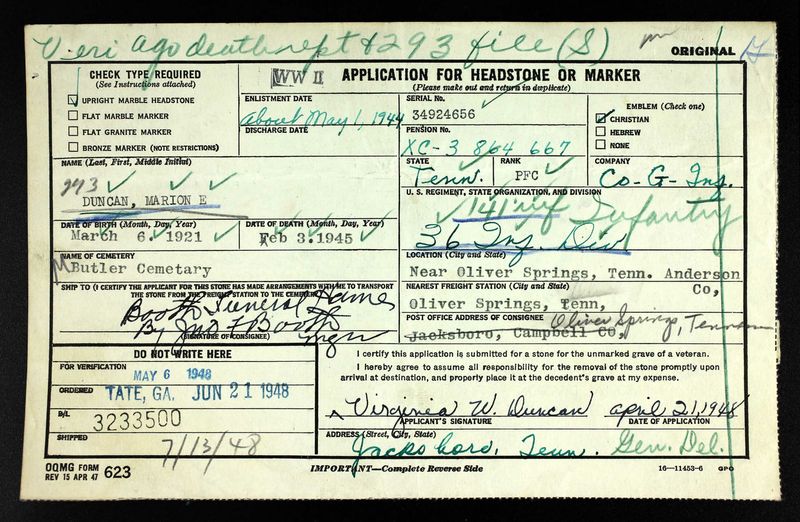 Veri ago death rept & 293 file (S)
ORIGINAL
CHECK TYPE REQUIRED
(See Instructions attached)
UPRIGHT MARBLE HEADSTONE
FLAT MARBLE MARKER
FLAT GRANITE MARKER
BRONZE MARKER (NOTE RESTRICTIONS)
WW II
APPLICATION FOR HEADSTONE OR MARKER
(Please make out and return in duplicate)
ENLISTMENT DATE
about May 1, 1944
DISCHARGE DATE
SERIAL No.
34924656
PENSION No.
XC-3 864 667
EMBLEM (Check one)
CHRISTIAN
HEBREW
NONE
STATE
Tenn.
RANK
PFC
COMPANY
Co-G-Inf.
NAME (Last, First, Middle Initial)
293
DUNCAN, MARION E
U. S. REGIMENT, STATE ORGANIZATION, AND DIVISION
141 inf Infantry
36 Inf. Div
DATE OF BIRTH (Month, Day, Year)
March 6. 1921
DATE OF DEATH (Month, Day, Year)
Feb 3.1945
NAME OF CEMETERY
Butler Cemetary
LOCATION (City and State)
Near Oliver Springs, Tenn. Anderson Co,
SHIP TO (I CERTIFY THE APPLICANT FOR THIS STONE HAS MADE ARRANGEMENTS WITH ME TO TRANSPORT
THE STONE FROM THE FREIGHT STATION TO THE CEMETERY)
Booth Funeral Homes
By Jno F Booth
mgr
(SIGNATURE OF CONSIGNEE)
NEAREST FREIGHT STATION (City and State)
Oliver Springs, Tenn,
POST OFFICE ADDRESS OF CONSIGNEE
Oliver Springs, Tenn
Jacksboro, Campbell Co,
DO NOT WRITE HERE
FOR VERIFICATION
MAY 6 1948
ORDERED
TATE, GA. JUN 21 1948
B/L
3233500
SHIPPED
7/13/48
I certify this application is submitted for a stone for the unmarked grave of a veteran.
I hereby agree to assume all responsibility for the removal of the stone promptly upon
arrival at destination, and properly place it at the decedent's grave at my expense.
Virginia W. Duncan april 21, 1948
APPLICANT'S SIGNATURE
DATE OF APPLICATION
ADDRESS (Street, City, State)
Jacksboro, Tenn. Gen. Del.
OQMG FORM
REV 15 APR 47
623
IMPORTANT—Complete Reverse Side
16—11453-6 GPO